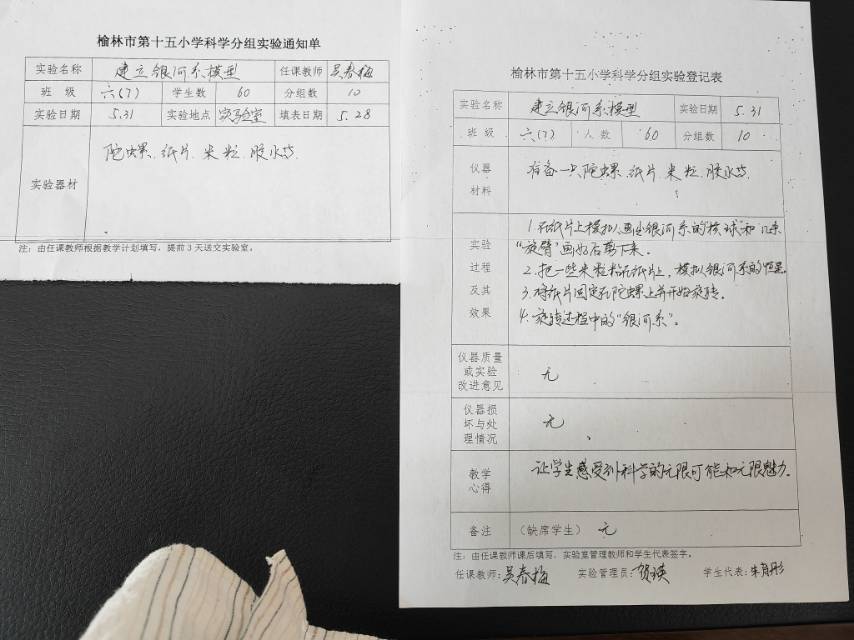 榆林市第十五小学科学分组实验通知单
实验名称 建立银河系模型 任课教师 吴春梅
班 级 六(7) 学生数 60 分组数 10
实验日期 5.31 实验地点 实验室 填表日期 5.28
实验器材 陀螺、纸片、米粒、胶水等
注：由任课教师根据教学计划填写，提前3天送交实验室。
榆林市第十五小学科学分组实验登记表
实验名称 建立银河系模型 实验日期 5.31
班 级 六(7) 人 数 60 分组数 10
仪器材料 准备一只陀螺、纸片、米粒、胶水等
实验过程及其效果
1.在纸片上模拟画出银河系的"核球"和几条
"旋臂"画好后剪下来。
2.把一些米粒粘在纸片上，模拟银河系的恒星
3.将纸片固定在陀螺上并开始旋转。
4.旋转过程中的"银河系"。
仪器质量或实验改进意见 无
仪器损坏与处理情况 无
教学心得 让学生感受到科学的无限可能和无限魅力。
备注 (缺席学生) 无
注：由任课教师课后填写，实验室管理教师和学生代表签字。
任课教师: 吴春梅 实验管理员: 贺瑛 学生代表: